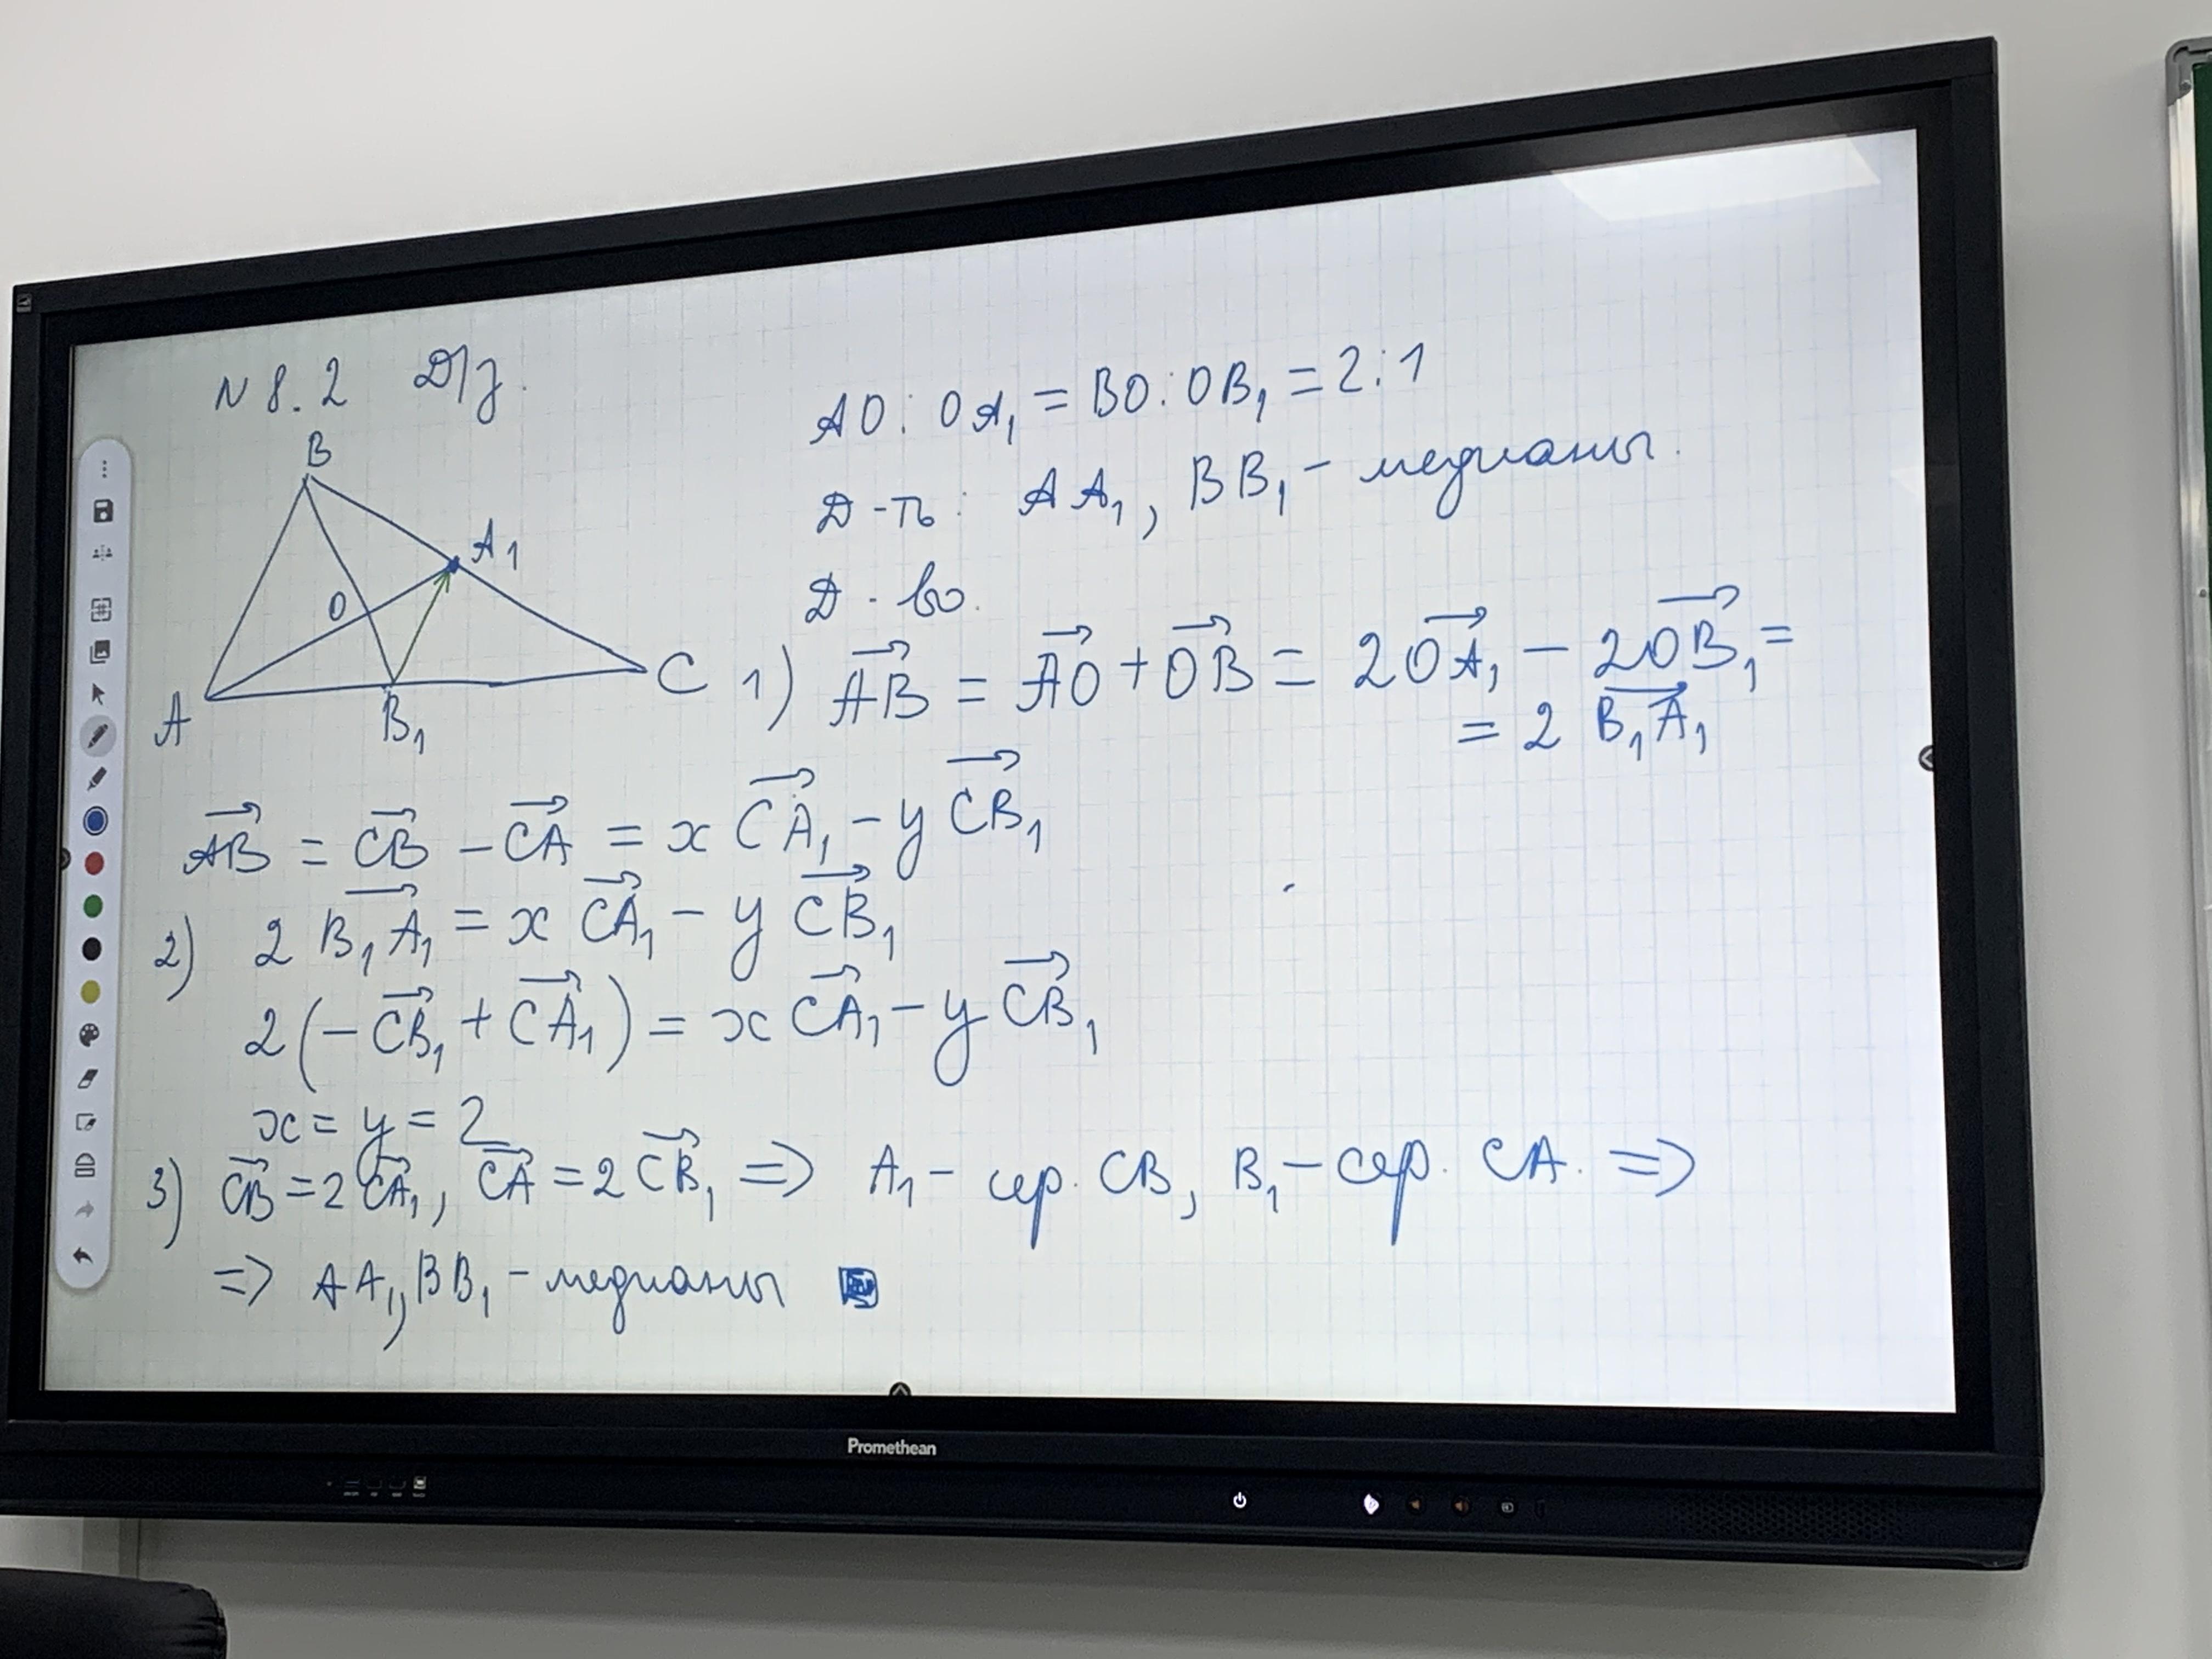 N 8.2 Д/з.
B
A₁
O
A
B₁
C
AO : OA₁ = BO : OB₁ = 2 : 1
Д-ть: AA₁, BB₁ - медианы.
Д-во.
1) \overrightarrow{AB} = \overrightarrow{AO} + \overrightarrow{OB} = 2\overrightarrow{OA₁} - 2\overrightarrow{OB₁} =
= 2 \overrightarrow{B₁A₁}
\overrightarrow{AB} = \overrightarrow{CB} - \overrightarrow{CA} = x \overrightarrow{CA₁} - y \overrightarrow{CB₁}
2) 2 \overrightarrow{B₁A₁} = x \overrightarrow{CA₁} - y \overrightarrow{CB₁}
2(-\overrightarrow{CB₁} + \overrightarrow{CA₁}) = x \overrightarrow{CA₁} - y \overrightarrow{CB₁}
x = y = 2
3) \overrightarrow{CB} = 2 \overrightarrow{CA₁}, \overrightarrow{CA} = 2 \overrightarrow{CB₁} => A₁ - сер. CB, B₁ - сер. CA. =>
=> AA₁, BB₁ - медианы
Promethean